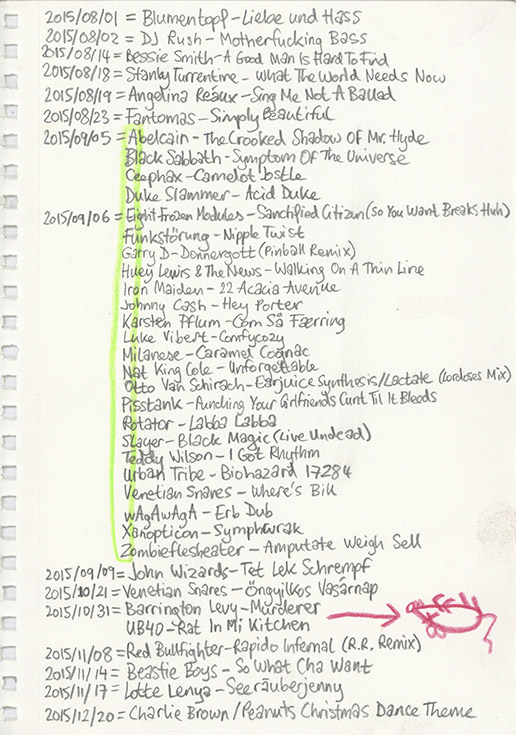 2015/08/01 = Blumentopf - Liebe und Hass
2015/08/02 = DJ Rush - Motherfucking Bass
2015/08/14 = Bessie Smith - A Good Man Is Hard To Find
2015/08/18 = Stanly Turrentine - What The World Needs Now
2015/08/19 = Angelina Réaux - Sing Me Not A Ballad
2015/08/23 = Fantomas - Simply Beautiful
2015/09/05 = Abelcain - The Crooked Shadow Of Mr. Hyde
Black Sabbath - Symptom Of The Universe
Ceephax - Camelot Ostle
Duke Slammer - Acid Duke
2015/09/06 = Eight Frozen Modules - Sanctified Citizen (So You Want Breaks Huh)
Funkstörung - Nipple Twist
Garry D - Donnergott (Pinball Remix)
Huey Lewis & The News - Walking On A Thin Line
Iron Maiden - 22 Acacia Avenue
Johnny Cash - Hey Porter
Karsten Pflum - Com Så Færring
Luke Vibert - Comfycozy
Milanese - Caramel Cognac
Nat King Cole - Unforgettable
Otto Van Schirach - Earjuice Synthesis/Lactate (Loroloses Mix)
Pisstank - Punching Your Girlfriends Cunt Til It Bleeds
Rotator - Labba Labba
Slayer - Black Magic (Live Undead)
Teddy Wilson - I Got Rhythm
Urban Tribe - Biohazard 17284
Venetian Snares - Where's Bill
wAgAwAgA - Erb Dub
Xanopticon - Symphwrak
Zombieflesheater - Amputate Weigh Sell
2015/09/09 = John Wizards - Tet Lek Schrempf
2015/10/21 = Venetian Snares - Öngyilkos Vasárnap
2015/10/31 = Barrington Levy - Murderer
UB40 - Rat In Mi Kitchen
2015/11/08 = Red Bullfighter - Rapido Infernal (R.R. Remix)
2015/11/14 = Beastie Boys - So What Cha Want
2015/11/17 = Lotte Lenya - Seeräuberjenny
2015/12/20 = Charlie Brown/Peanuts Christmas Dance Theme